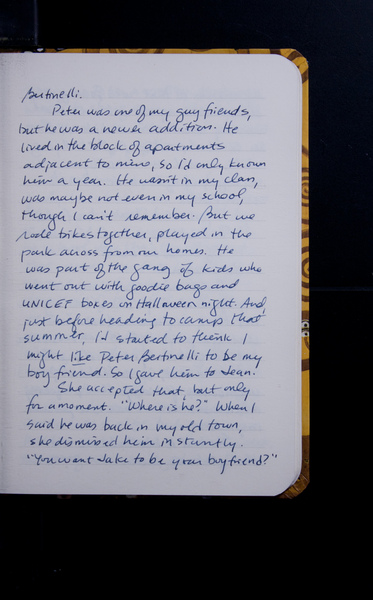 Bertinelli.
Peter was one of my guy friends,
but he was a newer addition. He
lived in the block of apartments
adjacent to mine, so I'd only known
him a year. He wasn't in my class,
was maybe not even in my school,
though I can't remember. But we
rode bikes together, played in the
park across from our homes. He
was part of the gang of kids who
went out with goodie bags and
UNICEF boxes on Halloween night. And,
just before heading to camp that
summer, I'd started to think I
might like Peter Bertinelli to be my
boy friend. So I gave him to Jean.
She accepted that, but only
for a moment. "Where is he?" When I
said he was back in my old town,
she dismissed him instantly.
"You want Jake to be your boyfriend?"